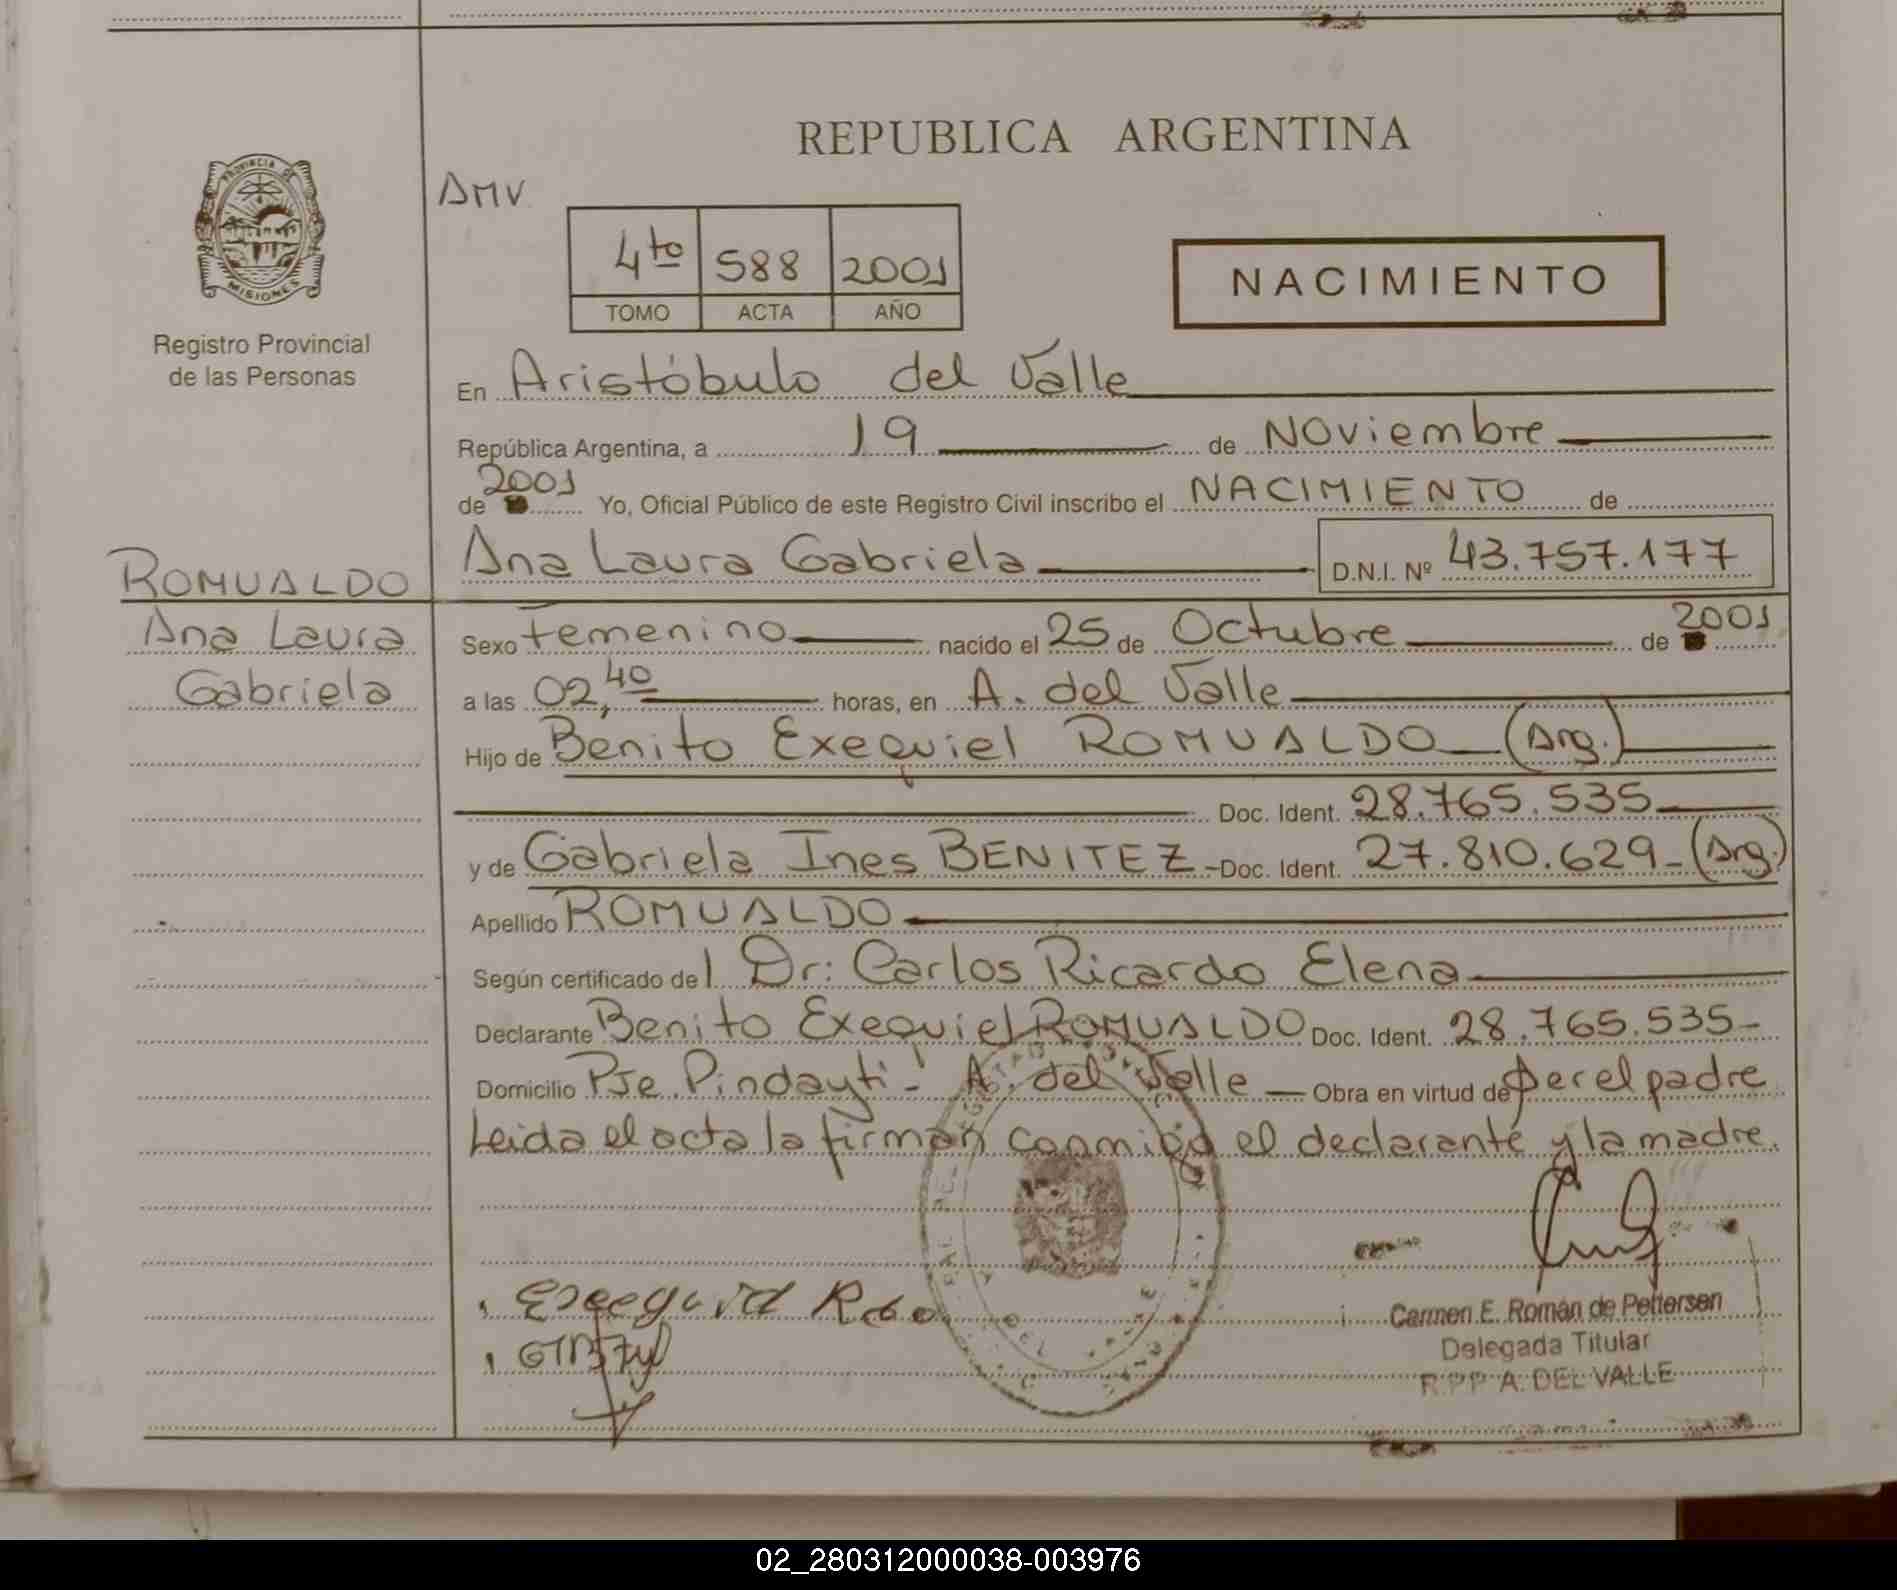 REPUBLICA ARGENTINA
PROVINCIA DE
MISIONES
Registro Provincial
de las Personas
AMV
4to 588 2001
TOMO ACTA AÑO
NACIMIENTO
En Aristóbulo del Valle
República Argentina, a 19 de Noviembre
de 2001 Yo, Oficial Público de este Registro Civil inscribo el NACIMIENTO de
Ana Laura Gabriela D.N.I. Nº 43.757.177
ROMUALDO
Ana Laura
Gabriela
Sexo Femenino nacido el 25 de Octubre de 2001
a las 02,40 horas, en A. del Valle
Hijo de Benito Exequiel ROMUALDO (Arg.)
Doc. Ident. 28.765.535
y de Gabriela Ines BENITEZ - Doc. Ident. 27.810.629 - (Arg.)
Apellido ROMUALDO
Según certificado del Dr: Carlos Ricardo Elena
Declarante Benito Exequiel ROMUALDO Doc. Ident. 28.765.535 -
Domicilio Pje. Pindayti - A. del Valle Obra en virtud de ser el padre
Leida el acta la firman conmigo el declarante y la madre.
Carmen E. Román de Pettersen
Delegada Titular
R.P.P. A. DEL VALLE
02_280312000038-003976